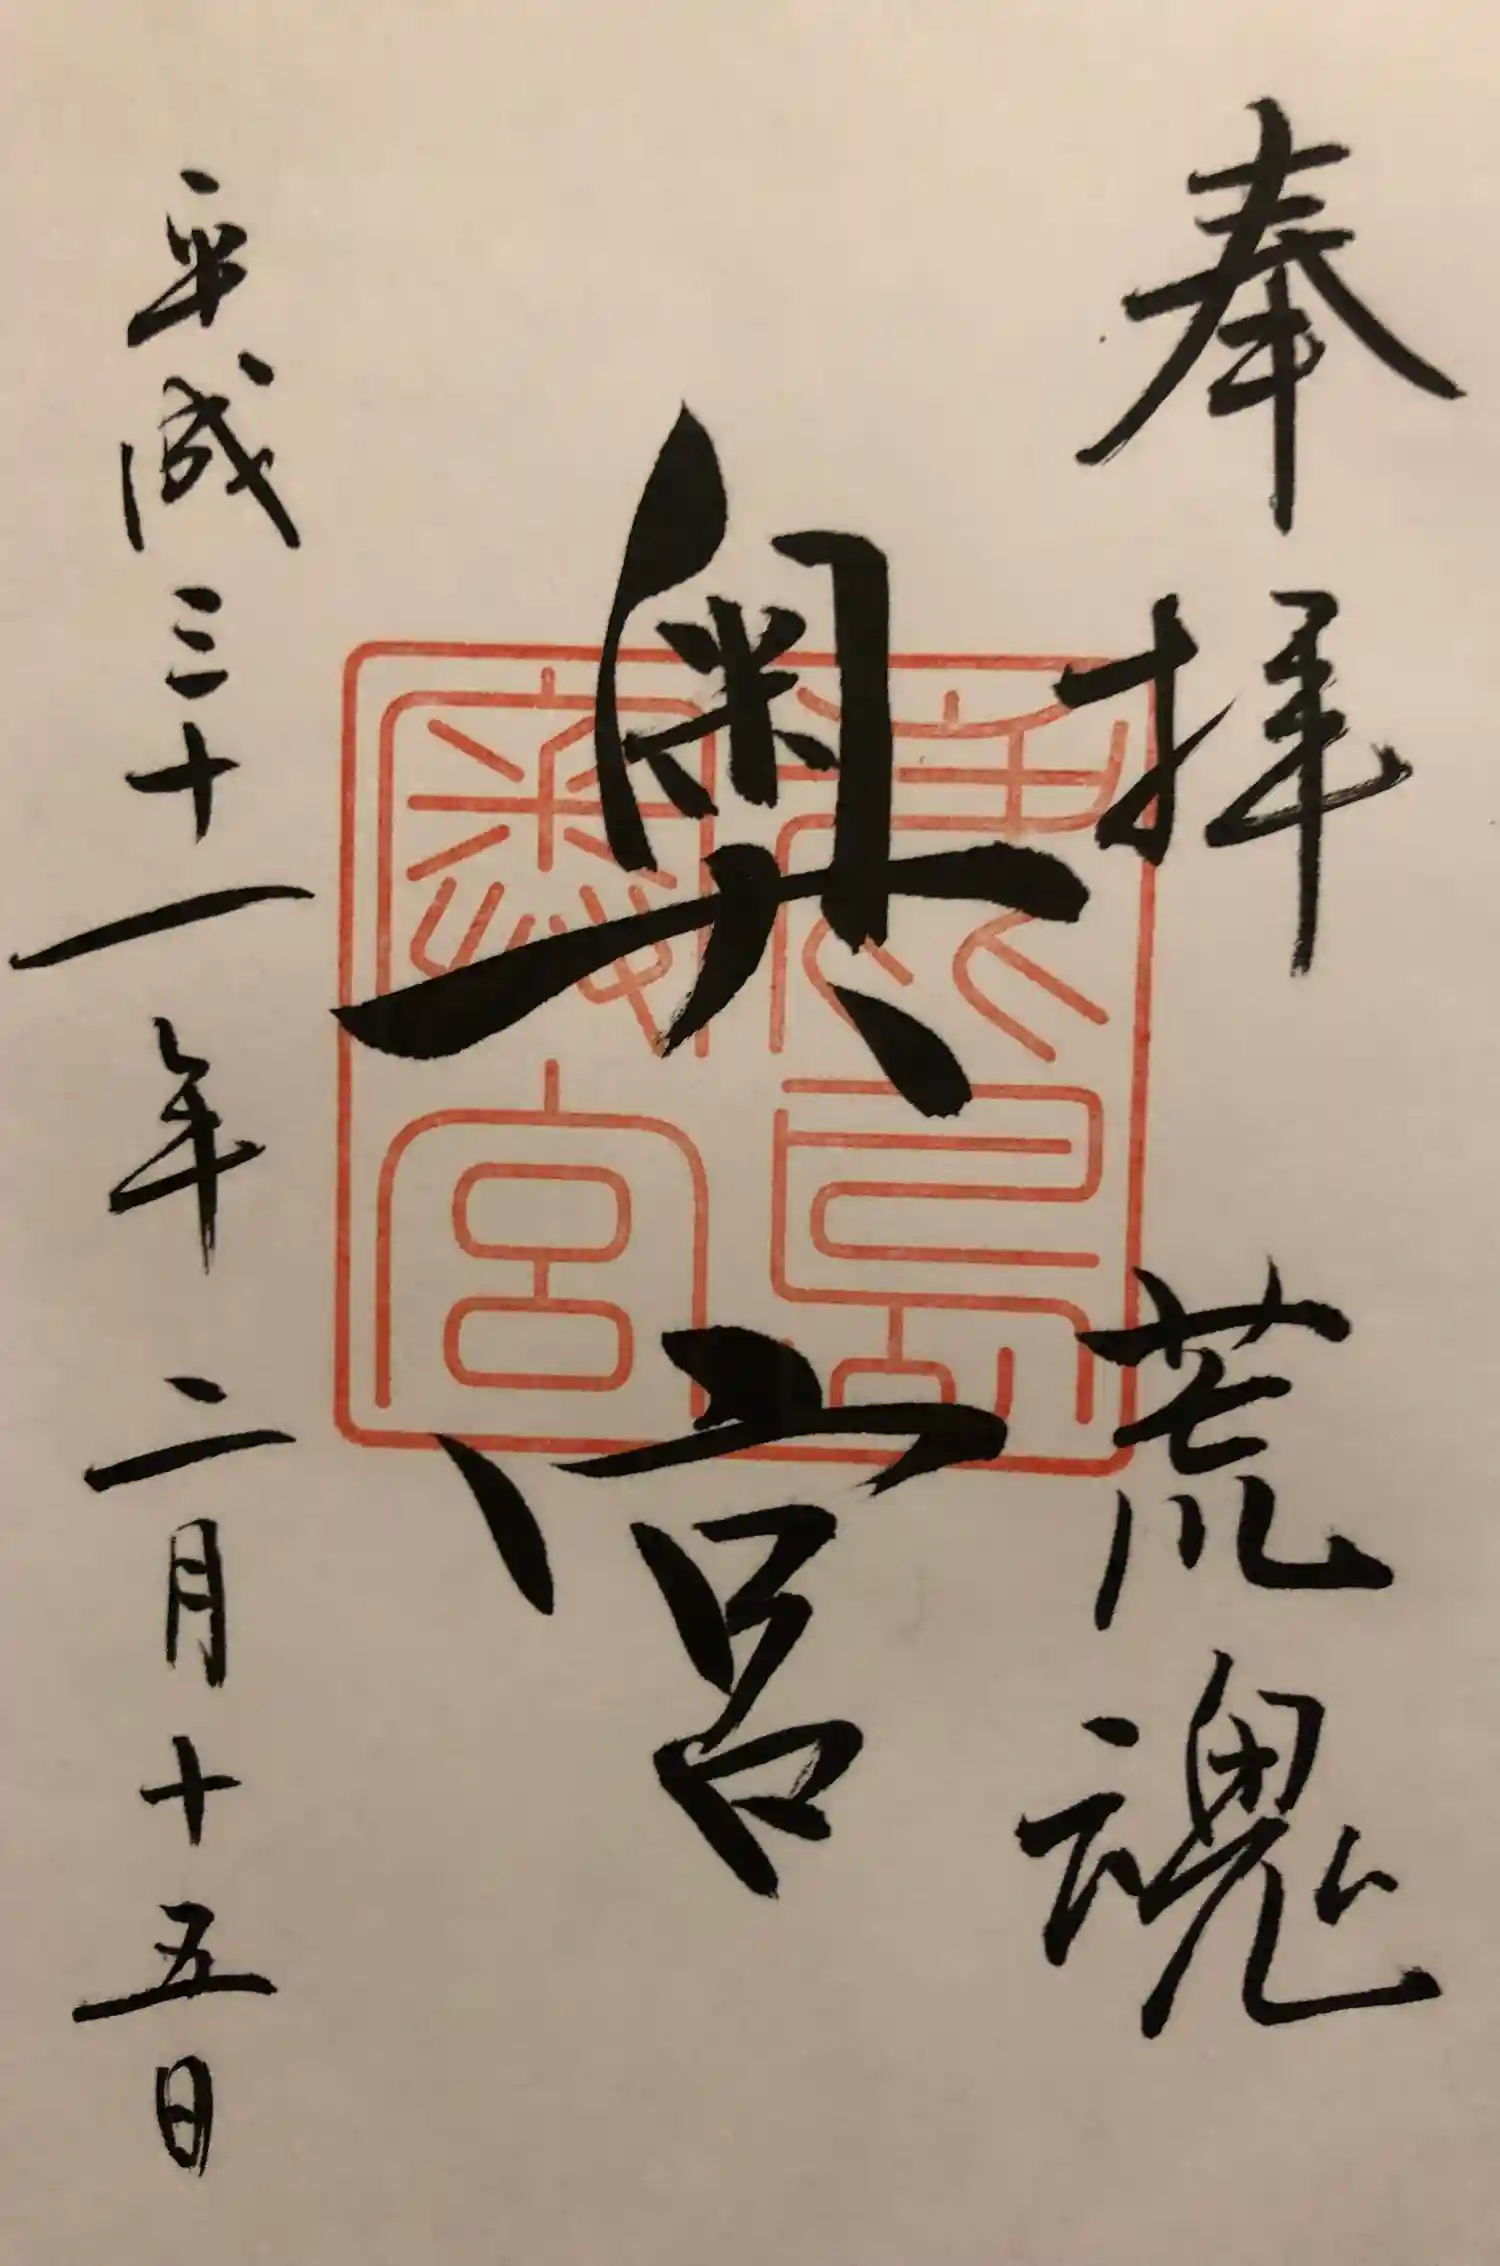 奉拝 荒魂
奥宮
鹿島
奥宮
平成三十一年二月十五日